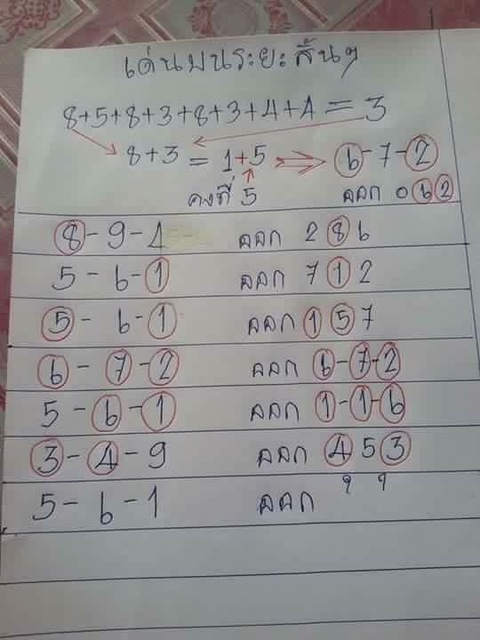 เด่นบนระยะสั้นๆ
8+5+8+3+8+3+4+4=3
8+3 = 1+5 ⇒ 6-7-2
คงที่ 5 ออก 062
8-9-4 ออก 286
5-6-1 ออก 712
5-6-1 ออก 157
6-7-2 ออก 6-7-2
5-6-1 ออก 1-1-6
3-4-9 ออก 453
5-6-1 ออก ? ?